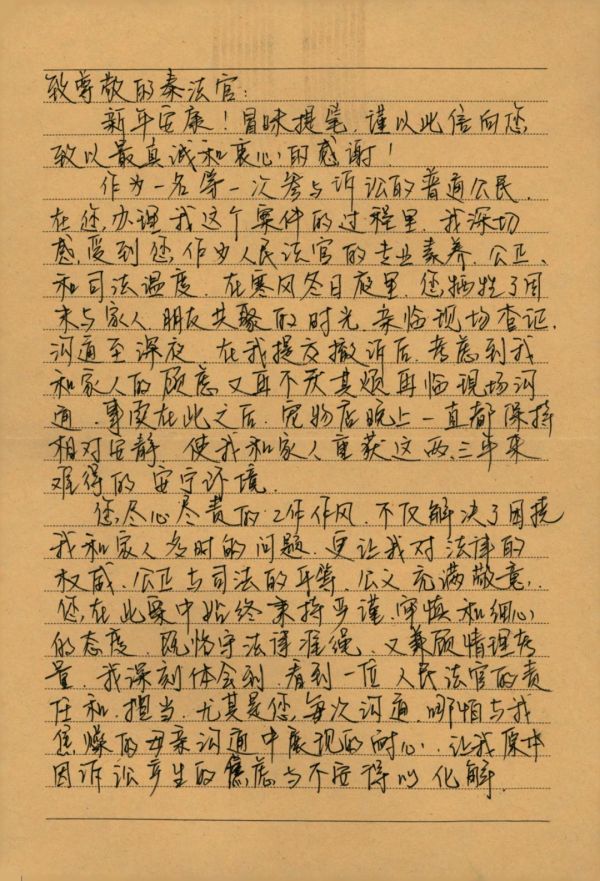 致尊敬的秦法官:
新年安康!冒昧提笔,谨以此信向您
致以最真诚和衷心的感谢!
作为一名第一次参与诉讼的普通公民,
在您办理我这个案件的过程里,我深切
感受到您作为人民法官的专业素养、公正、
和司法温度。在寒风冬日夜里,您牺牲了周
末与家人、朋友共聚的时光,亲临现场查证,
沟通至深夜。在我提交撤诉后,考虑到我
和家人的顾虑,又再不厌其烦再临现场沟
通,事实在此之后,宠物店晚上一直都保持
相对安静,使我和家人重获这两、三年来
难得的安宁环境。
您尽心尽责的工作作风,不仅解决了困扰
我和家人多时的问题,更让我对法律的
权威、公正与司法的平等、公义充满敬意。
您在此案中始终秉持严谨、审慎和细心
的态度,既恪守法律准绳,又兼顾情理考
量,我深刻体会到、看到一位人民法官的责
任和担当。尤其是您每次沟通,哪怕与我
焦燥的母亲沟通中展现的耐心,让我原本
因诉讼产生的焦虑与不安得以化解。